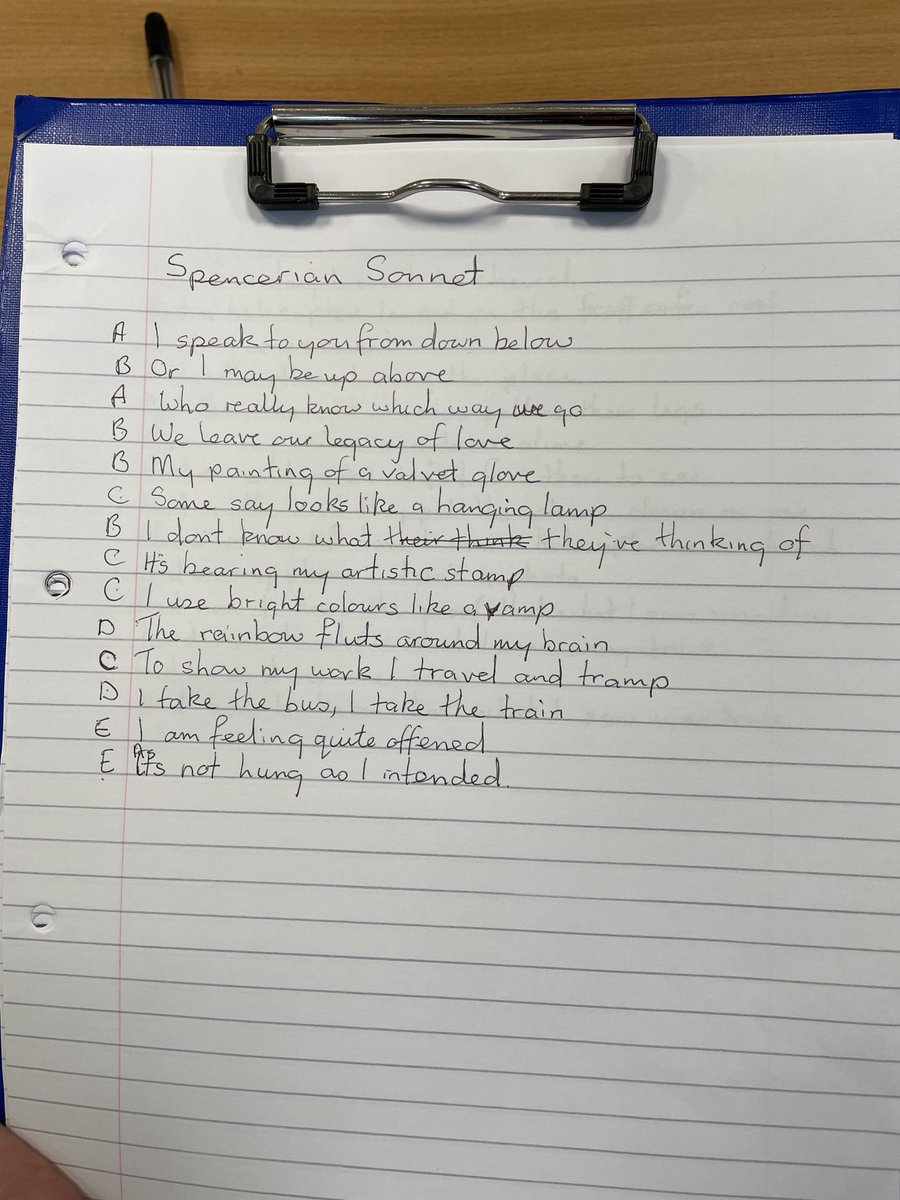 Spencerian Sonnet
A I speak to you from down below
B Or I may be up above
A Who really know which way we go
B We leave our legacy of love
B My painting of a valvet glove
C Some say looks like a hanging lamp
B I dont know what their think they've thinking of
C It's bearing my artistic stamp
C I use bright colours like a vamp
D The rainbow fluts around my brain
C To show my work I travel and tramp
D I take the bus, I take the train
E I am feeling quite offened
E As It's not hung as I intended.